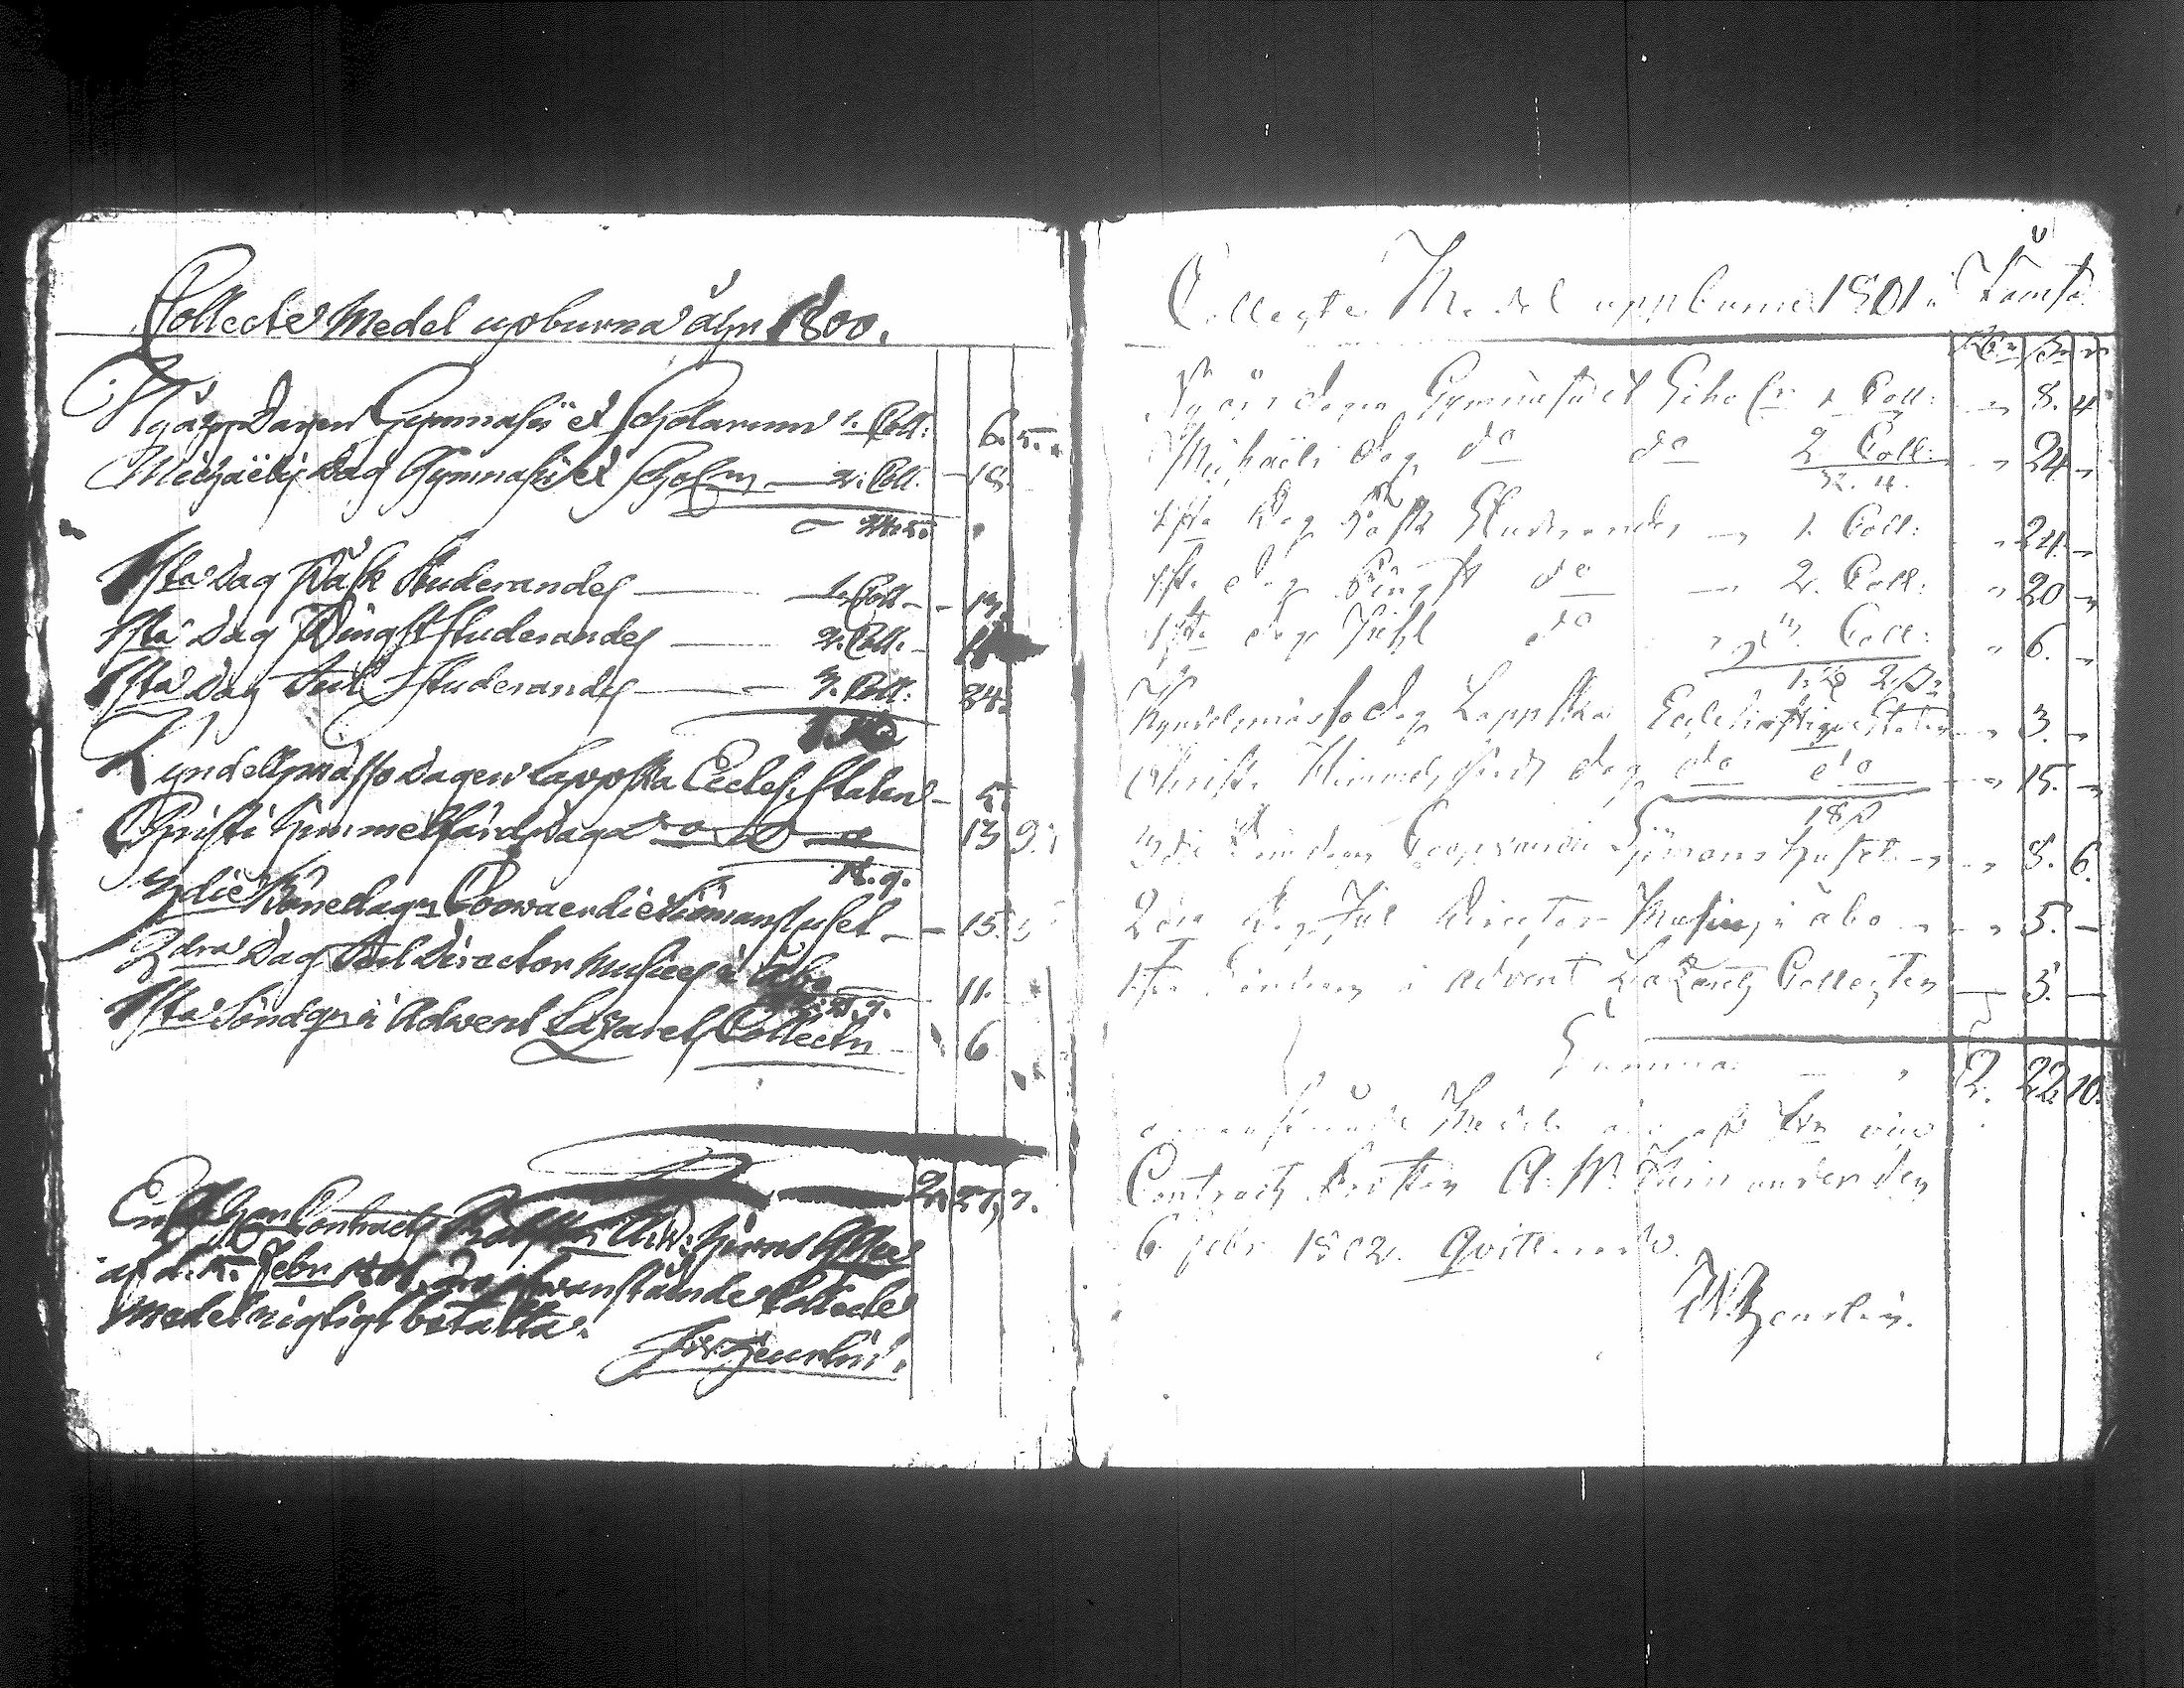 Collecte Medel upburna åhr 1800.
Nyåhrs Dagen Gymnasii et Scholarum 1. Coll: 6. 5.
Michaëlis Dag Gymnasii et Schol_m 2. Coll. 18.
24. 5.
1sta Dag Påsk Studerandes 1. Coll 13.
1sta Dag Pingst Studerandes 2. Coll.
1sta Dag Juul Studerandes 3. Coll: 24.
Kyndelsmässo Dagen Lappska Eccles. Staten 5.
Christi Himmelfärds Daga do do 13 9.
18. 9.
3die Bönedagn Coopvaerdie Siömanshuset 15.
2dra Dag Jul Director Musices i Åbo 11.
1sta Söndagn i Advent Lazarets Collectn 6
2. 27. 7.
Enl. Contracts Prosten
af d. Febr 1801 ofvanstående Collecte
Medel rigtigt betalta.
Collegte Medel uppburne 1801 i Jämsä
Nyårs dagen Gymnasii et Schol_r 1 Coll: 8. 4
Michaëlis dag do do 2 Coll: 24
32. 4.
1sta dag Påsk Studerandes 1. Coll: 24.
1sta dag Pingst do 2. Coll: 20
1sta dag Juhl do Coll: 6.
Kyndelmässo dag Lappska Ecclesiastique Staten 3.
Christi Himmelsfärds dag do do 15.
18 ß
3die Böndagen Coopvaerdie Sjömanshuset 8. 6.
2dra dag Jul Director Musices i åbo 5.
1sta Söndagen i Advent Lazarets Collegten 3.
Summa 2. 22. 10.
ofvanstående Medel
Contracts Prosten A. W. under den
6 febr 1802. Qvitterade.